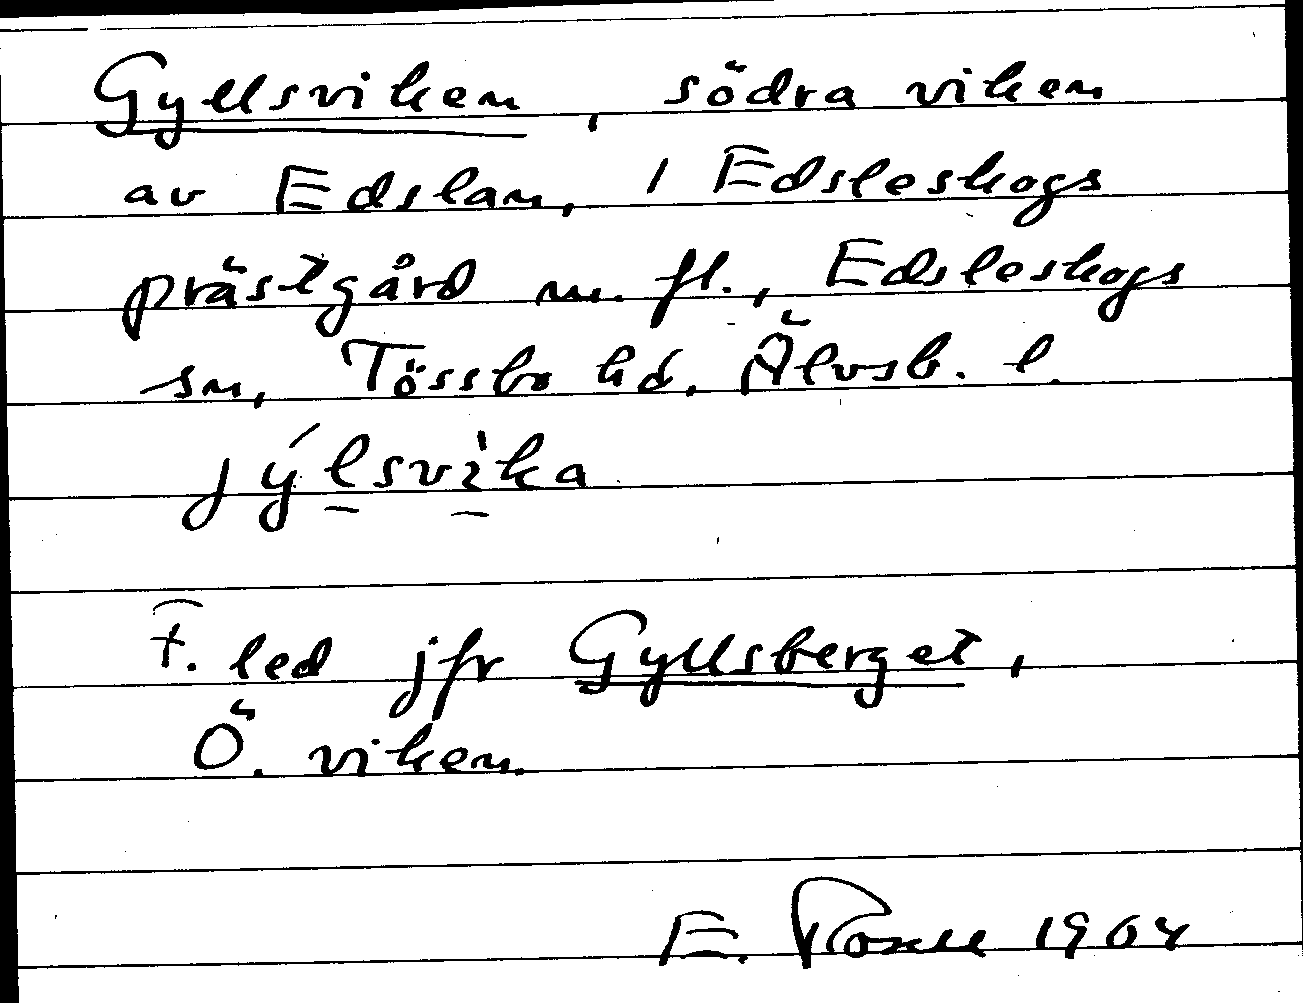 Gyllsviken, södra viken
av Edslan, i Edsleskogs
prästgård m. fl., Edsleskogs
sn, Tössbo hd, Älvsb. l.
jýlsvìka
F. led jfr Gyllsberget,
Ö. viken.
E. 1964